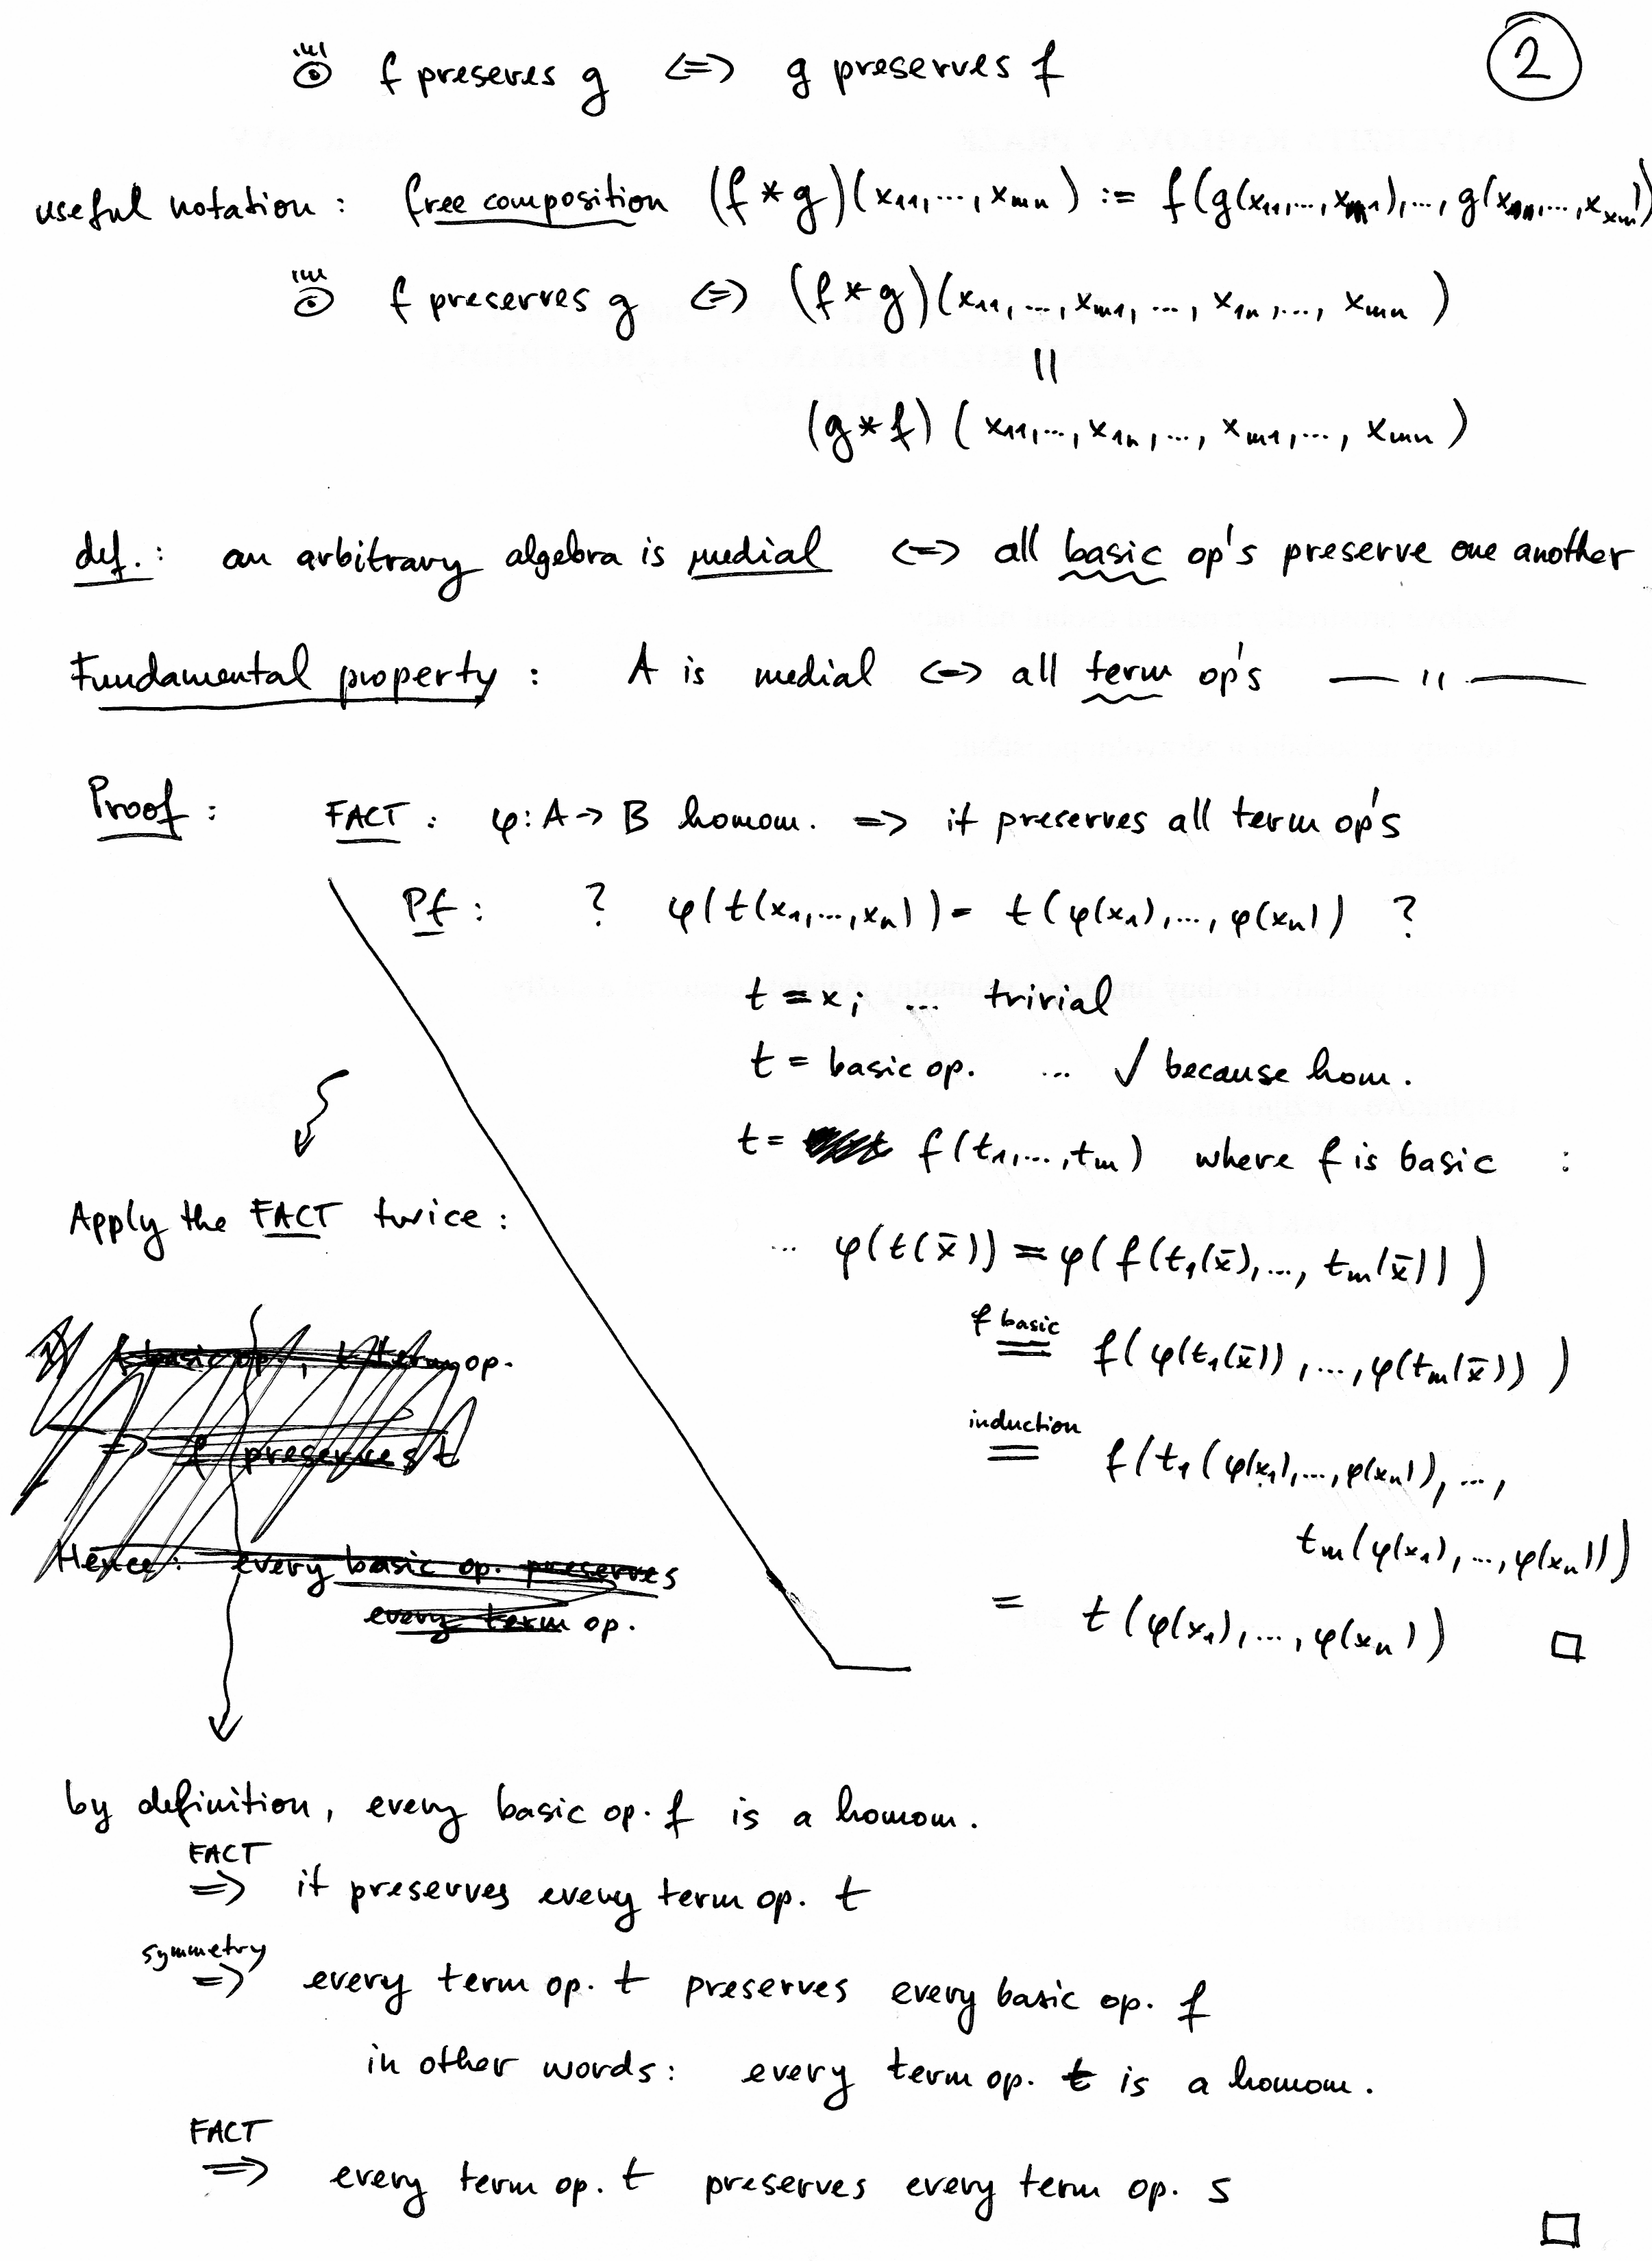 2
f preseves g <=> g preserves f
useful notation : free composition (f * g)(x₁₁,...,xₘₙ) := f(g(x₁₁,...,xₘ₁),...,g(
f preserves g <=> (f * g)(x₁₁, ..., xₘ₁, ..., x₁ₙ, ..., xₘₙ)
||
(g * f)(x₁₁,...,x₁ₙ,..., xₘ₁,..., xₘₙ)
def. : an arbitrary algebra is medial <=> all basic op's preserve one another
Fundamental property : A is medial <=> all term op's — " —
Proof : FACT : φ: A -> B homom. => it preserves all term op's
Pf : ? φ(t(x₁,...,xₙ)) = t(φ(x₁),...,φ(xₙ)) ?
t = xᵢ ... trivial
t = basic op. ... ✓ because hom.
t = f(t₁,...,tₘ) where f is basic :
Apply the FACT twice :
... φ(t(x̄)) = φ(f(t₁(x̄),..., tₘ(x̄)))
f basic
= f(φ(t₁(x̄)),...,φ(tₘ(x̄)))
induction
= f(t₁(φ(x₁),...,φ(xₙ)),...,
tₘ(φ(x₁),...,φ(xₙ)))
= t(φ(x₁),...,φ(xₙ)) □
f basic op., t term op.
=> f preserves t
Hence : every basic op. preserves
every term op.
by definition, every basic op. f is a homom.
FACT
=> it preserves every term op. t
symmetry
=> every term op. t preserves every basic op. f
in other words : every term op. t is a homom.
FACT
=> every term op. t preserves every term op. s
□